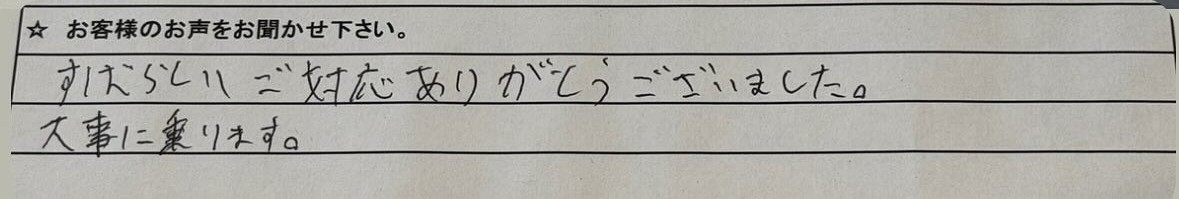 ☆ お客様のお声をお聞かせ下さい。
すばらしいご対応ありがとうございました。
大事に乗ります。